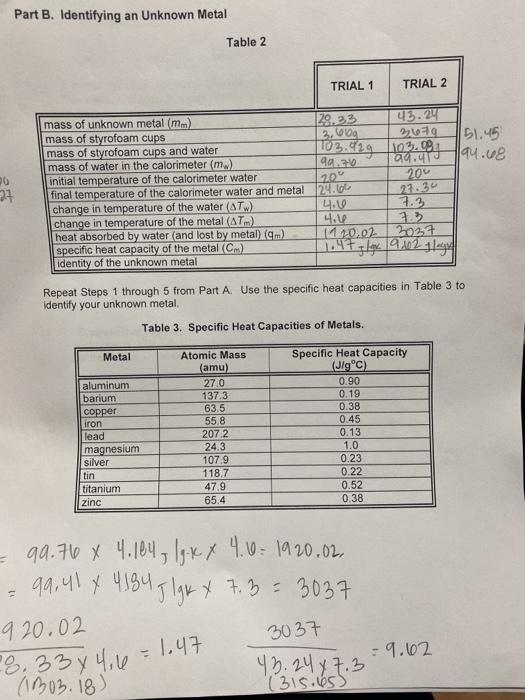 Part B. Identifying an Unknown Metal
Table 2
TRIAL 1 TRIAL 2
mass of unknown metal (mm) 28.33 43.24
mass of styrofoam cups 3.66g 3.67g 51.45
mass of styrofoam cups and water 103.42g 103.08g 94.68
mass of water in the calorimeter (mw) 99.76 99.41g
initial temperature of the calorimeter water 20° 20°
27 final temperature of the calorimeter water and metal 24.6° 27.3°
change in temperature of the water (ΔTw) 4.6 7.3
change in temperature of the metal (ΔTm) 4.6 7.3
heat absorbed by water (and lost by metal) (qm) 1920.02 3037
specific heat capacity of the metal (Cm) 1.47 J/gk 9.62 J/gk
identity of the unknown metal
Repeat Steps 1 through 5 from Part A. Use the specific heat capacities in Table 3 to
identify your unknown metal.
Table 3. Specific Heat Capacities of Metals.
Metal Atomic Mass (amu) Specific Heat Capacity (J/g°C)
aluminum 27.0 0.90
barium 137.3 0.19
copper 63.5 0.38
iron 55.8 0.45
lead 207.2 0.13
magnesium 24.3 1.0
silver 107.9 0.23
tin 118.7 0.22
titanium 47.9 0.52
zinc 65.4 0.38
= 99.76 x 4.184 J/g·k x 4.6 = 1920.02
= 99.41 x 4184 J/gk x 7.3 = 3037
920.02
8.33 x 4.6 = 1.47
(1303.18)
3037
43.24 x 7.3 = 9.62
(315.65)